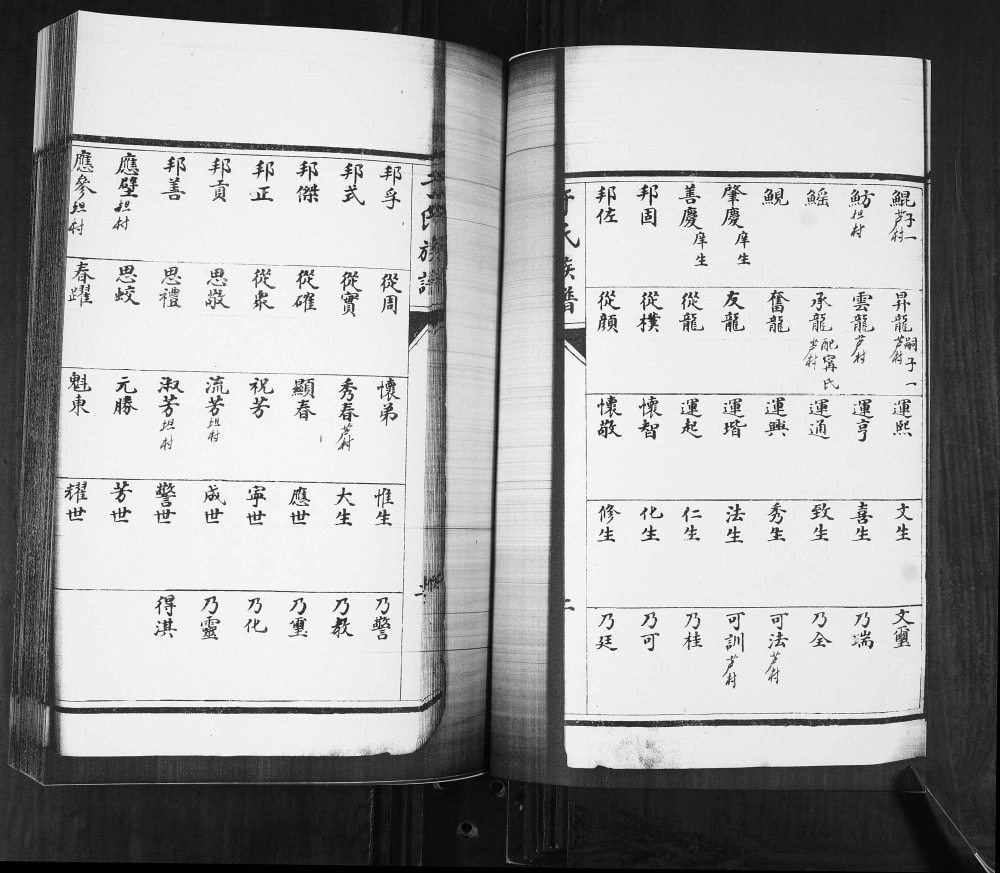 鯤子一芦村
魴坦村
鰩
鯢
肇慶庠生
善慶庠生
邦固
邦佐
昇龍嗣子一芦村
雲龍芦村
承龍配甯氏芦村
奮龍
友龍
從龍
從樸
從顔
運熙
運亨
運通
運興
運堦
運起
懷智
懷敬
文生
喜生
致生
秀生
法生
仁生
化生
修生
文璽
乃端
乃全
可法芦村
可訓芦村
乃桂
乃可
乃廷
于氏族譜
邦孚
邦式
邦傑
邦正
邦貢
邦善
應璧坦村
應參坦村
從周
從實
從確
從衆
思敬
思禮
思蛟
春躍
懷弟
秀春芦村
顯春
祝芳
流芳坦村
淑芳坦村
元勝
魁東
惟生
大生
應世
寧世
成世
警世
芳世
耀世
乃警
乃教
乃璽
乃化
乃靈
得淇